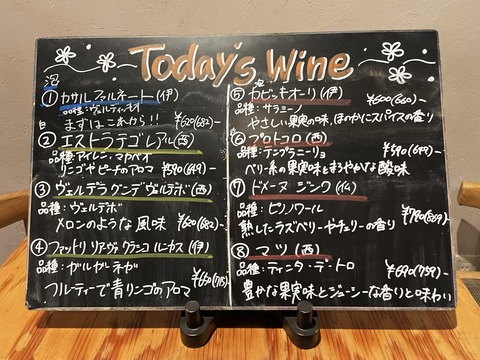 Today's Wine
泡
① カサルファルネート(伊)
品種:ヴェルディッキオ
まずはこれから!! ¥620(682)-
白
② エストラテゴ レアル(西)
品種:アイレン、マカベオ
リンゴやピーチのアロマ ¥590(649)-
③ ヴェルデラグンデ ヴェルデホ(西)
品種:ヴェルデホ
メロンのような風味 ¥620(682)-
④ ファットリ リアヴゥ クランコ ルーカス(伊)
品種:ガルガルネガ
¥650(715)-
フルーティーで青リンゴのアロマ
⑤ カビッキオーリ(伊)
品種:サラミーノ ¥600(660)-
やさしい果実の味、ほのかにスパイスの香り
⑥ プロトコロ(西)
品種:テンプラニーリョ ¥590(649)-
ベリー系の果実味とまろやかな酸味
⑦ ドメーヌ ジンク(仏)
品種:ピノノワール ¥790(869)-
熟したラズベリーやチェリーの香り
⑧ マツ(西)
品種:ティンタ・デ・トロ ¥690(759)-
豊かな果実味とジューシーな香りと味わい